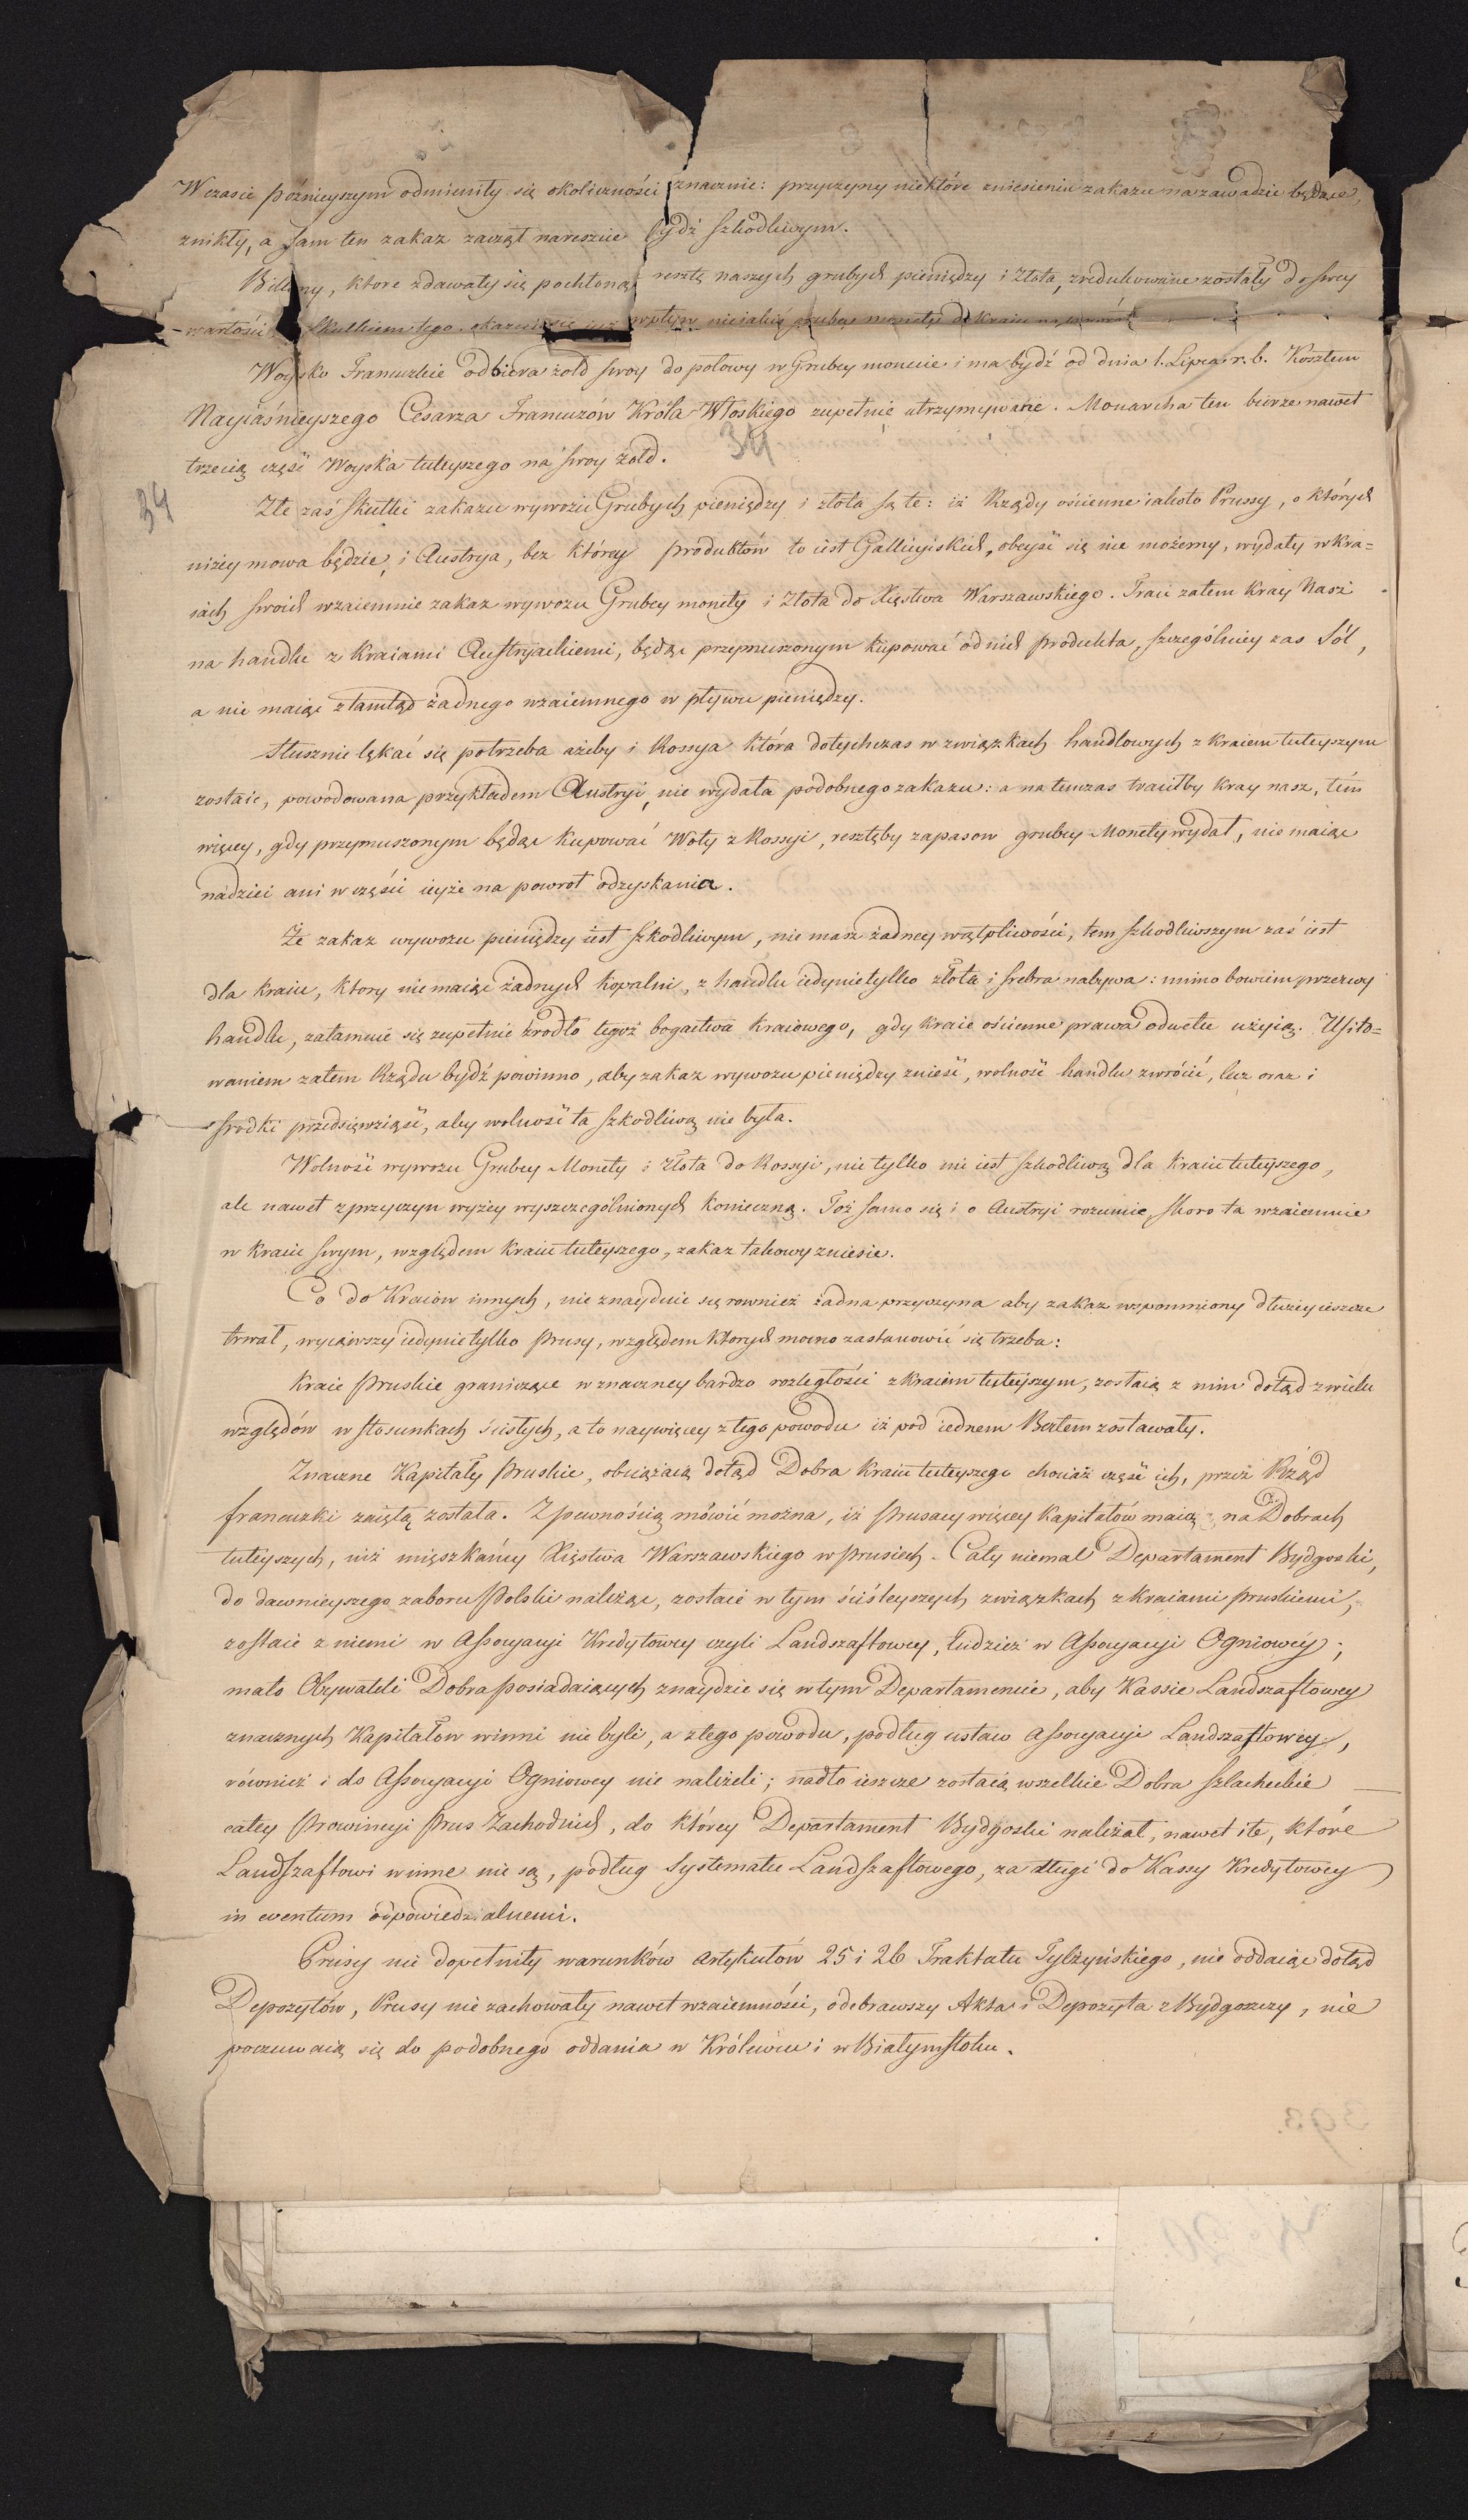 W czasie późnieyszym odmieniły się okoliczności znacznie: przyczyny niektóre zniesieniu zakazu na zawadzie będące,
znikły, a sam ten zakaz zaczął nareszcie bydź szkodliwym.
Billony, ktore zdawały się pochłonąć resztę naszych grubych pieniędzy i złota, zredukowane zostały do swey
wartości Skutkiem tego okazuie się iuż wpływ nieiakiś grubey monety do kraiu na powrót
Woysko Francuzkie odbiera żołd swoy do połowy w Grubey monecie i ma bydź od dnia 1. Lipca r. b. Kosztem
Nayiaśnieyszego Cesarza Francuzów Króla Włoskiego zupełnie utrzymywane. Monarcha ten bierze nawet
trzecią część Woyska tuteyszego na swoy żołd.
34
34
Złe zaś skutki zakazu wywozu Grubych pieniędzy i złota są te: iż Rządy ościenne iakoto Prussy, o których
niżey mowa będzie, i Austrya, bez którey produktów to iest Gallicyiskich, obeyść się nie możemy, wydały w kra=
iach swoich wzaiemnie zakaz wywozu Grubey monety i Złota do Xięstwa Warszawskiego. Traci zatem Kray Nasz
na handlu z Kraiami Austryackiemi, będąc przymuszonym kupować od nich produkta, szczególniey zas Sól,
a nie maiąc ztamtąd żadnego wzaiemnego w pływu pieniędzy.
Słusznie lękać się potrzeba ażeby i Rossya która dotychczas w związkach handlowych z kraiem tuteyszym
zostaie, powodowana przykładem Austryi, nie wydała podobnego zakazu: a na tenczas traciłby kray nasz, tém
więcey, gdy przymuszonym będąc kupować Woły z Rossyi, resztęby zapasow grubey Monety wydał, nie maiąc
nadziei ani w części ieyże na powrot odzyskania.
Że zakaz wywozu pieniędzy iest szkodliwym, nie masz żadney wątpliwości, tem szkodliwszym zaś iest
dla kraiu, ktory nie maiąc żadnych kopalni, z handlu iedynie tylko złota i srebra nabywa: mimo bowiem przerwy
handlu, zatamuie się zupełnie źrodło tegoż bogactwa kraiowego, gdy kraie ościenne prawa odwetu użyią. Usiło=
waniem zatem Rządu bydź powinno, aby zakaz wywozu pieniędzy znieść, wolność handlu zwrócić, lecz oraz i
srodki przedsięwziąść, aby wolność ta szkodliwą nie była.
Wolność wywozu Grubey Monety i złota do Rossyi, nie tylko nie iest szkodliwą dla kraiu tuteyszego,
ale nawet z przyczyn wyżey wyszczególnionych konieczną. Toż samo się i o Austryi rozumie, skoro ta wzaiemnie
w kraiu swym, względem kraiu tuteyszego, zakaz takowy zniesie.
Co do Kraiów innych, nie znayduie się rownież żadna przyczyna aby zakaz wspomniony dłużey ieszcze
trwał, wyiąwszy iedynie tylko Prusy, względem ktorych mocno zastanowić się trzeba:
Kraie Pruskie graniczące w znaczney bardzo rozległości z kraiem tuteyszym, zostaią z nim dotąd z wielu
względów w stosunkach ścisłych, a to naywięcey z tego powodu iż pod iednem Berłem zostawały.
Znaczne Kapitały Pruskie, obciążaią dotąd Dobra Kraiu tuteyszego chociaż część ich, przez Rząd
francuzki zaiętą została. Z pewnością mówić można, iż Prusacy więcey Kapitałów maią na Dobrach
tuteyszych, niż mięszkańcy Xięstwa Warszawskiego w Prusiech. Cały niemal Departament Bydgoski,
do dawnieyszego zaboru Polski należąc, zostaie w tym ściśleyszych związkach z kraiami pruskiemi,
zostaie z niemi w Assocyacyi Kredytowey czyli Landszaftowey, tudzież w Assocyacyi Ogniowey;
mało Obywateli Dobra posiadaiących znaydzie się w tym Departamencie, aby Kassie Landszaftowey
znacznych Kapitałow winni nie byli, a z tego powodu, podług ustaw assocyacyi Landszaftowey,
również i do Assocyacyi Ogniowey nie należeli; nadto ieszcze zostaią wszelkie Dobra szlacheckie
całey Prowincyi Prus Zachodnich, do którey Departament Bydgoski należał, nawet i te, które
Landszaftowi winne nie są, podług Systematu Landszaftowego, za długi do Kassy Kredytowey
in eventum odpowiedzialnemi.
Prusy nie dopełniły warunków artykułów 25 i 26 Traktatu Tylżyńskiego, nie oddaiąc dotąd
Depozytów, Prusy nie zachowały nawet wzaiemności, odebrawszy Akta i Depozyta z Bydgoszczy, nie
poczuwaią się do podobnego oddania w Królewcu i w Białymstoku.